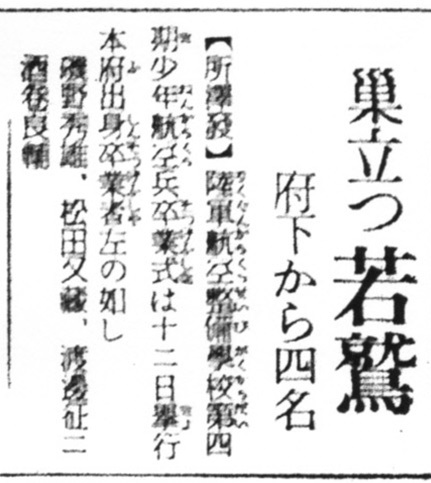 巣立つ若鷲
府下から四名
【所澤發】陸軍航空整備學校第四
期少年航空兵卒業式は十二日擧行
本府出身卒業者左の如し
磯野秀雄、松田久藏、渡邊征二
酒卷良輔